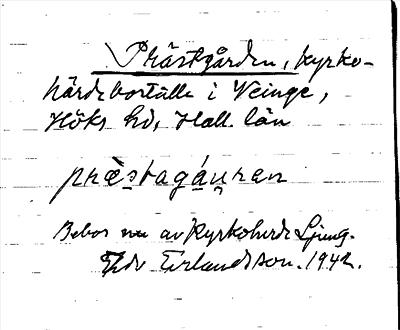 Prästgården, kyrko-
härdeboställe i Veinge,
Höks hd, Hall. län
prȁs̱tagáu̯ran
Bebos nu av Kyrkoherde Ljung.
Edv Erlandsson. 1942.